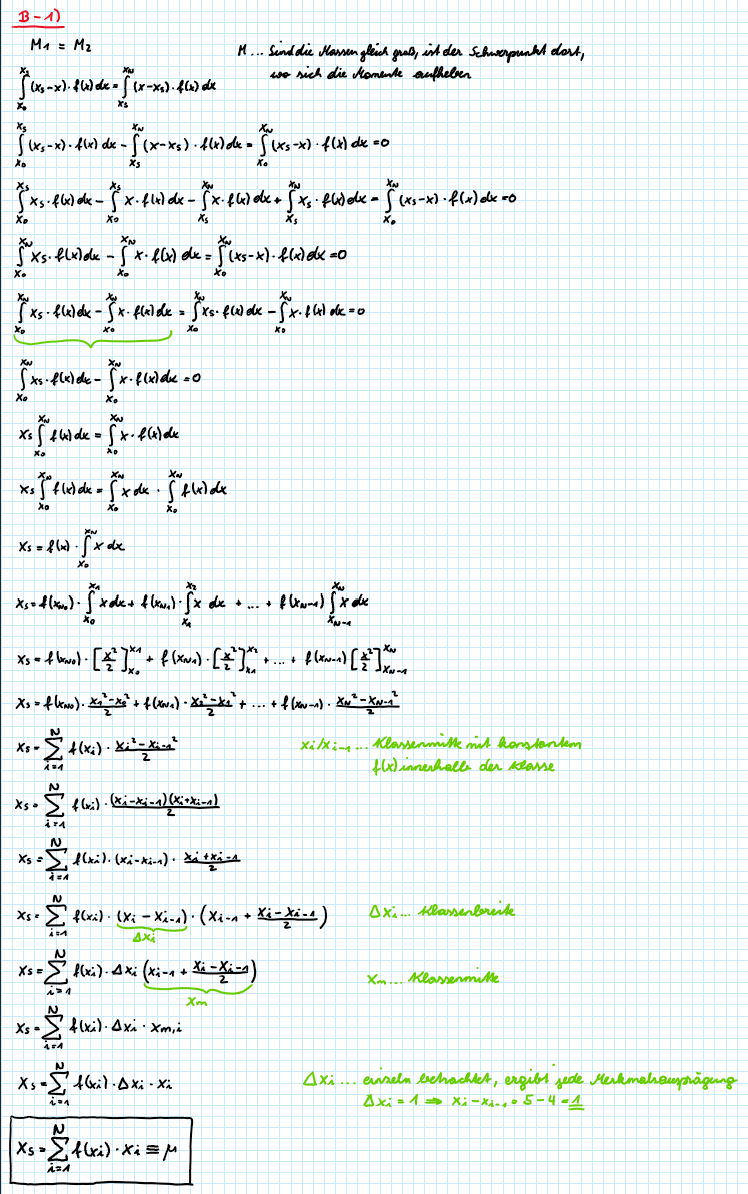 B-1)
M₁ = M₂
M ... Sind die Massen gleich groß, ist der Schwerpunkt dort,
wo sich die Momente aufheben
∫_{x₀}^{x_s} (x_s-x)·f(x) dx = ∫_{x_s}^{x_N} (x-x_s)·f(x) dx
∫_{x₀}^{x_s} (x_s-x)·f(x) dx - ∫_{x_s}^{x_N} (x-x_s)·f(x) dx = ∫_{x₀}^{x_N} (x_s-x)·f(x) dx = 0
∫_{x₀}^{x_s} x_s·f(x) dx - ∫_{x₀}^{x_s} x·f(x) dx - ∫_{x_s}^{x_N} x·f(x) dx + ∫_{x_s}^{x_N} x_s·f(x) dx = ∫_{x₀}^{x_N} (x_s-x)·f(x) dx = 0
∫_{x₀}^{x_N} x_s·f(x) dx - ∫_{x₀}^{x_N} x·f(x) dx = ∫_{x₀}^{x_N} (x_s-x)·f(x) dx = 0
∫_{x₀}^{x_N} x_s·f(x) dx - ∫_{x₀}^{x_N} x·f(x) dx = ∫_{x₀}^{x_N} x_s·f(x) dx - ∫_{x₀}^{x_N} x·f(x) dx = 0
∫_{x₀}^{x_N} x_s·f(x) dx - ∫_{x₀}^{x_N} x·f(x) dx = 0
x_s ∫_{x₀}^{x_N} f(x) dx = ∫_{x₀}^{x_N} x·f(x) dx
x_s ∫_{x₀}^{x_N} f(x) dx = ∫_{x₀}^{x_N} x dx · ∫_{x₀}^{x_N} f(x) dx
x_s = f(x) · ∫_{x₀}^{x_N} x dx
x_s = f(x_{N0}) · ∫_{x₀}^{x₁} x dx + f(x_{N1}) · ∫_{x₁}^{x₂} x dx + ... + f(x_{N-1}) ∫_{x_{N-1}}^{x_N} x dx
x_s = f(x_{N0}) · [x²/2]_{x₀}^{x₁} + f(x_{N1}) · [x²/2]_{x₁}^{x₂} + ... + f(x_{N-1}) [x²/2]_{x_{N-1}}^{x_N}
x_s = f(x_{N0}) · (x₁²-x₀²)/2 + f(x_{N1}) · (x₂²-x₁²)/2 + ... + f(x_{N-1}) · (x_N²-x_{N-1}²)/2
x_s = ∑_{i=1}^{N} f(x_i) · (x_i²-x_{i-1}²)/2
x_i/x_{i-1} ... Klassenmitte mit konstantem
f(x) innerhalb der Klasse
x_s = ∑_{i=1}^{N} f(x_i) · (x_i-x_{i-1})(x_i+x_{i-1})/2
x_s = ∑_{i=1}^{N} f(x_i) · (x_i-x_{i-1}) · (x_i+x_{i-1})/2
x_s = ∑_{i=1}^{N} f(x_i) · (x_i-x_{i-1}) · (x_{i-1} + (x_i-x_{i-1})/2)
Δx_i ... Klassenbreite
Δx_i
x_s = ∑_{i=1}^{N} f(x_i) · Δx_i (x_{i-1} + (x_i-x_{i-1})/2)
x_m ... Klassenmitte
x_m
x_s = ∑_{i=1}^{N} f(x_i) · Δx_i · x_{m,i}
x_s = ∑_{i=1}^{N} f(x_i) · Δx_i · x_i
Δx_i ... einzeln betrachtet, ergibt jede Merkmalsausprägung
Δx_i = 1 ⇒ x_i-x_{i-1} = 5-4 = 1
x_s = ∑_{i=1}^{N} f(x_i) · x_i ≡ μ